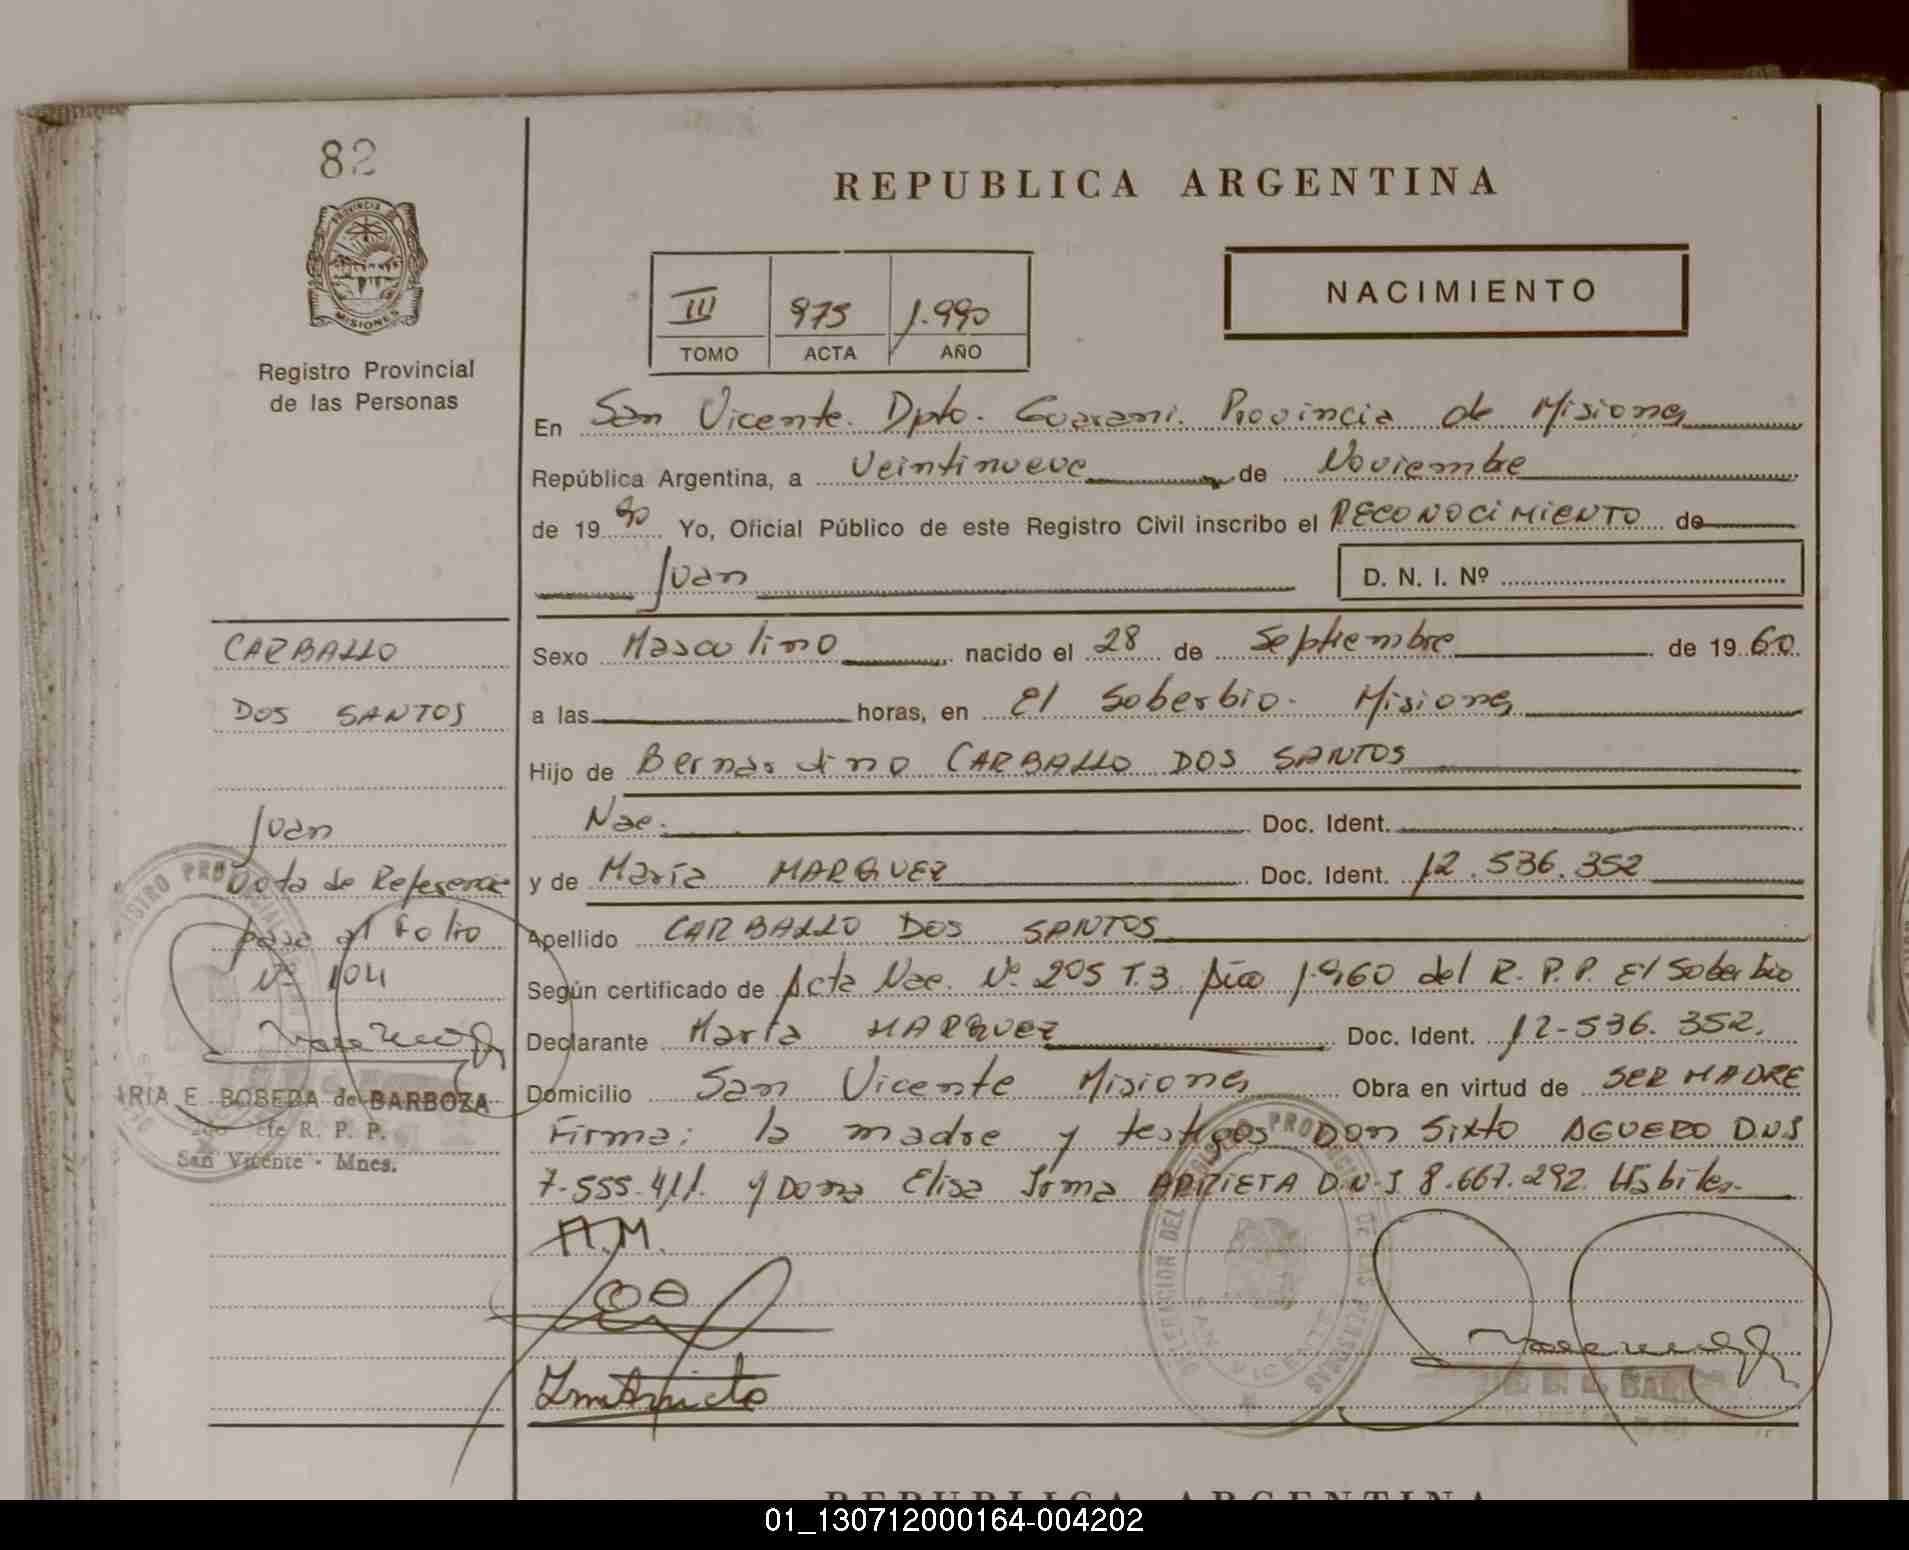 82
PROVINCIA DE
MISIONES
Registro Provincial
de las Personas
REPUBLICA ARGENTINA
III 975 1.990
TOMO ACTA AÑO
NACIMIENTO
En San Vicente. Dpto. Guarani. Provincia de Misiones
República Argentina, a Veintinueve de Noviembre
de 1990 Yo, Oficial Público de este Registro Civil inscribo el RECONOCIMIENTO de
Juan
D. N. I. Nº
Sexo Masculino nacido el 28 de Septiembre de 1960.
a las horas, en El Soberbio. Misiones
Hijo de Bernardino CARBALLO DOS SANTOS
Nac. Doc. Ident.
y de María MARQUEZ Doc. Ident. 12.536.352
Apellido CARBALLO DOS SANTOS
Según certificado de Acta Nac. Nº 205 T.3 Año 1.960 del R. P. P. El Soberbio
Declarante María MARQUEZ Doc. Ident. 12-536.352.
Domicilio San Vicente Misiones Obra en virtud de SER MADRE
Firma: la madre y testigos Don Sixto AGUERO D.N.I
7.555.411. y Dona Elisa Irma ARRIETA D.N.I 8.667.292. Habiles.
A.M.
CARBALLO
DOS SANTOS
Juan
Nota de Referencia
pasa al Folio
Nº 104
ARIA E. BOBEDA de BARBOZA
R. P. P.
San Vicente - Mnes.
REPUBLICA ARGENTINA
01_130712000164-004202